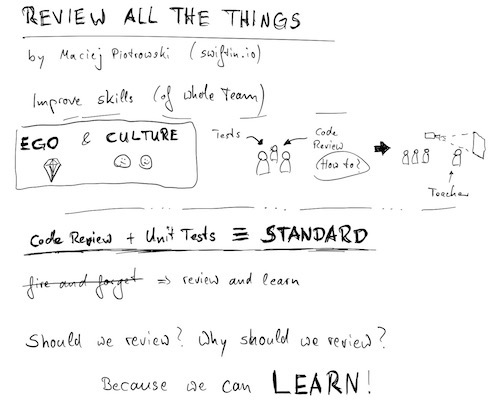 REVIEW ALL THE THINGS
by Maciej Piotrowski (swiftin.io)
Improve skills (of whole Team)
EGO & CULTURE
Tests
Code
Review
(How to?)
Teacher
Code Review + Unit Tests ≡ STANDARD
fire and forget => review and learn
Should we review? Why should we review?
Because we can LEARN!